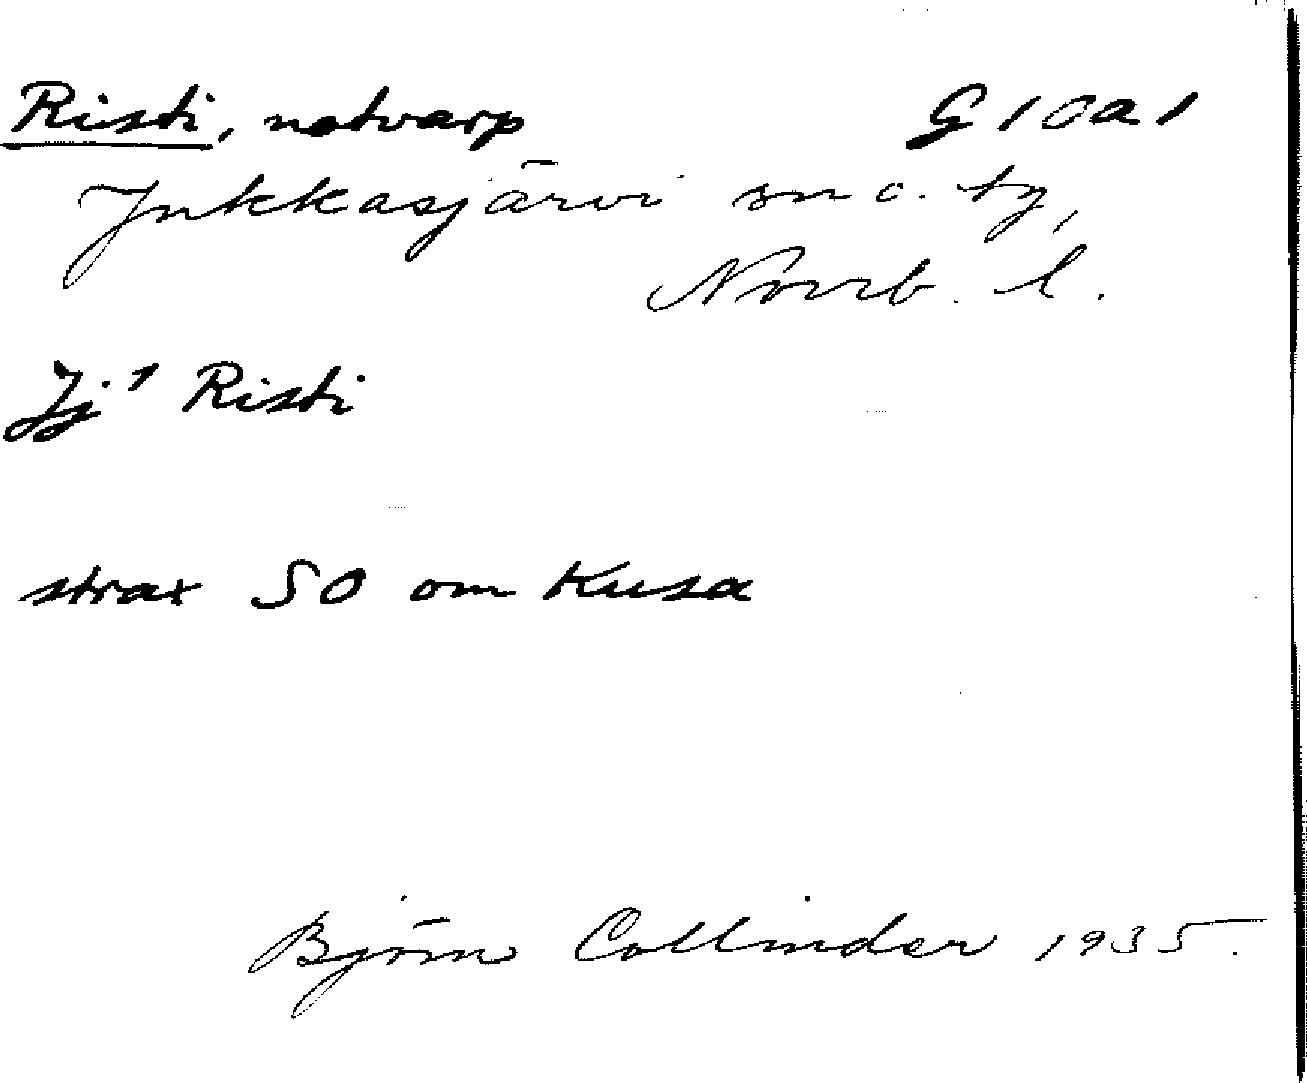 Risti, notvarp G 10 a 1
Jukkasjärvi sn o. tg,
Norrb. l.
Jj¹ Risti
strax SO om Kusa
Björn Collinder 1935.